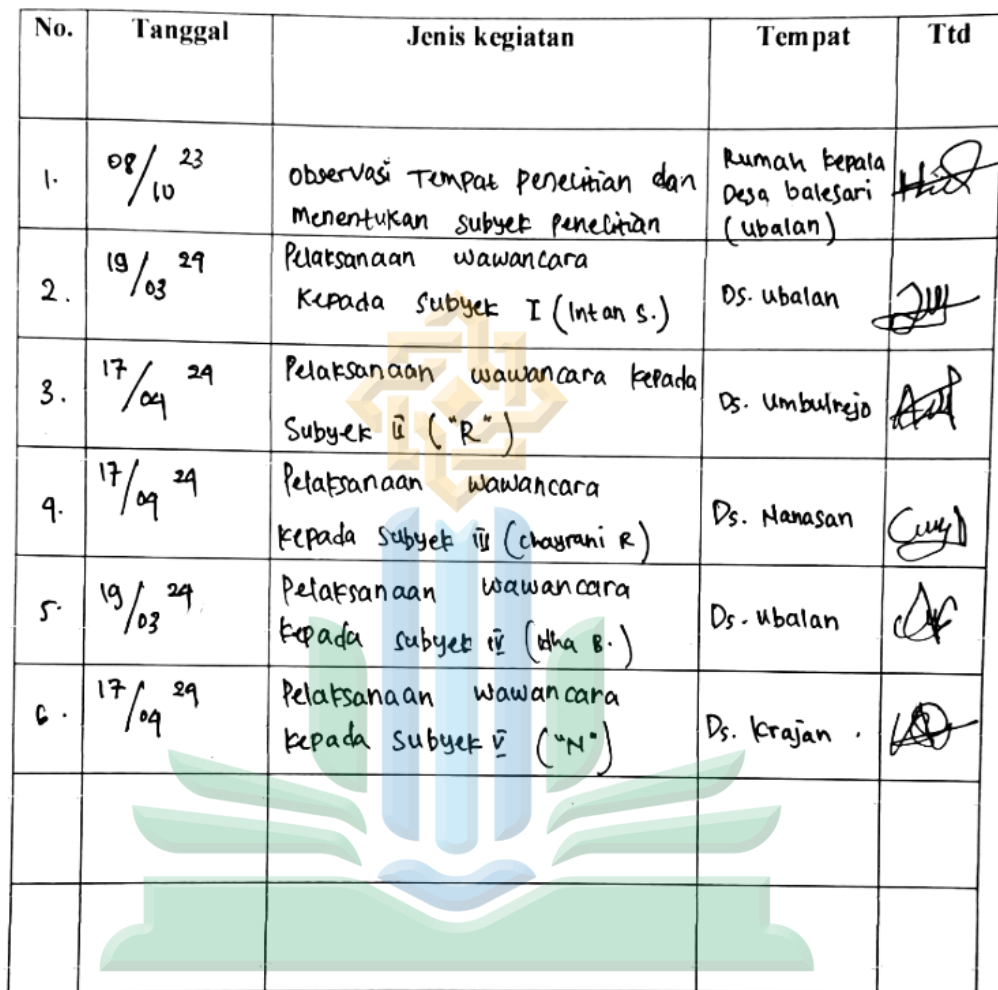 No. Tanggal Jenis kegiatan Tempat Ttd
1. 08/10 23 Observasi Tempat Penelitian dan Rumah Kepala
Menentukan Subyek Penelitian Desa balesari
(ubalan)
2. 19/03 24 Pelaksanaan wawancara
Kepada Subyek I (Intan S.) Ds. Ubalan
3. 17/04 24 Pelaksanaan wawancara kepada
Subyek II ("R") Ds. Umbulrejo
4. 17/04 24 Pelaksanaan wawancara
kepada Subyek III (Chayrani R) Ds. Nanasan
5. 19/03 24 Pelaksanaan wawancara
kepada Subyek IV (Idha B.) Ds. Ubalan
6. 17/04 24 Pelaksanaan wawancara
kepada Subyek V ("N") Ds. Krajan